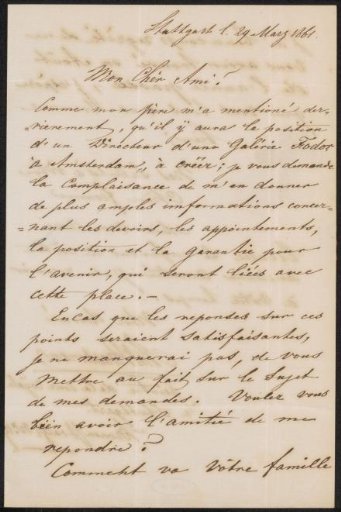 Stuttgart l. 29 Marz 1861.
Mon Chèr Ami!
Comme mon père m'a mentioné der-
nierement, qu'il ÿ aura la position
d'un Directeur d'une Galèrie Fodor
à Amsterdam, à créer; je vous demande
la Complaisance de m'en donner
de plus amples imformations concer-
-nant les devoirs, les appointements,
la position et la garantie pour
l'avenir, qui seront liées avec
cette place. —
Encas que les reponses sur ces
points seraient satisfaisantes,
je ne manquerai pas, de vous
mettre au fait sur le sujet
de mes demandes. Voulez vous
bien avoir l'amitié de me
repondre?
Comment va Vôtre famille